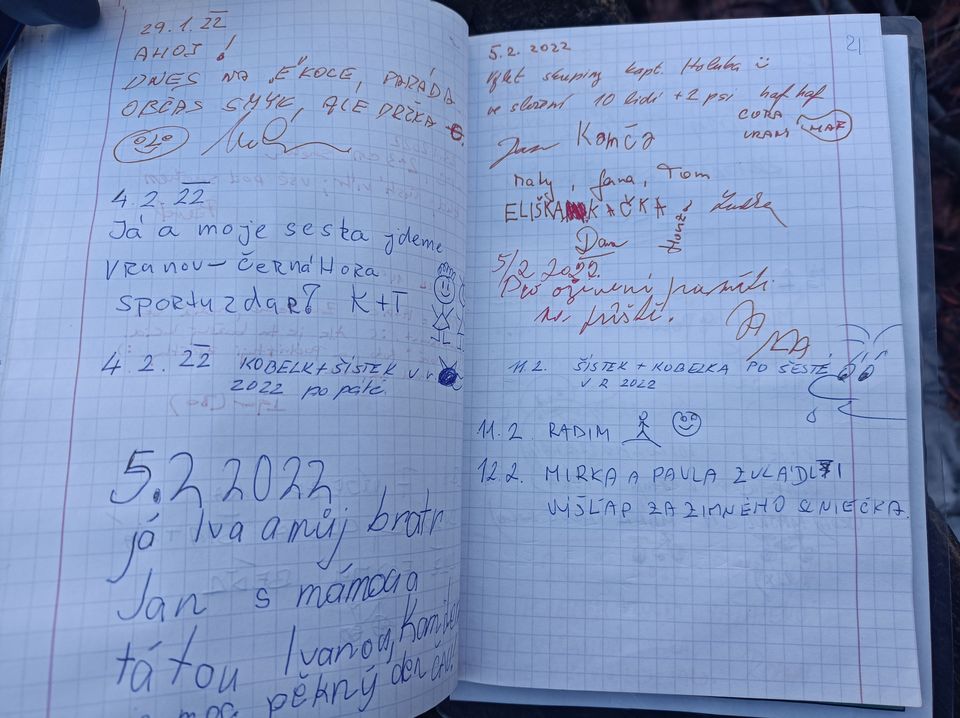 29.1.22
AHOJ!
DNES NA "E" KOCE, PARÁDA
OBČAS SMYK, ALE DRČKA
4.2.22
Já a moje sestra jdeme
Vranov – Černá Hora
sportu zdar! K+T
4.2.22 KOBELK + ŠÍSTEK v r
2022 po páté.
5.2 2022
já Iva a můj bratr
Jan s mámou a
tátou Ivanou, Kamilem
pěkný den
21
5.2.2022
Výlet skupiny kapt. Holuba
ve složení 10 lidí + 2 psi haf haf
CORA
HAF
Jan Komča
Maty, Jana, Tom
ELIŠKA KAČKA
Dan Honza
5/2 2022.
Pro oživení paměti
na příště.
11.2. ŠÍSTEK + KOBELKA PO ŠESTÉ
V R 2022
11.2 RADIM
12.2. MIRKA A PAVLA ZVLÁDLY I
VÝŠLAP ZA ZIMNÉHO SLNIEČKA.